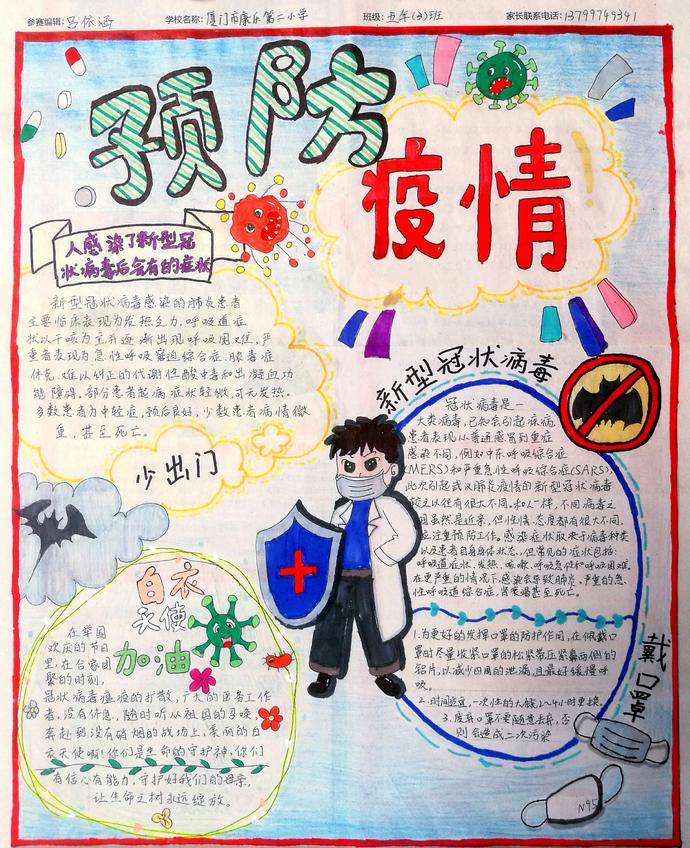 参赛编辑:吕依涵 学校名称:厦门市康乐第二小学 班级:五年(2)班 家长联系电话:13799749341
预防
疫情
人感染了新型冠
状病毒后会有的症状
新型冠状病毒感染的肺炎患者
主要临床表现为发热乏力,呼吸道症
状以干咳为主并逐渐出现呼吸困难,严
重者表现为急性呼吸窘迫综合症、脓毒症
休克、难以纠正的代谢性酸中毒和出凝血功
能障碍。部分患者起病症状轻微,可无发热。
多数患者为中轻症,预后良好,少数患者病情微
重,甚至死亡。
少出门
新型冠状病毒
冠状病毒是一
大类病毒,已知会引起疾病,
患者表现从普通感冒到重症
感染不同,例如中东呼吸综合症
(MERS)和严重急性呼吸综合症(SARS),
此次引起武汉肺炎疫情的新型冠状病毒
较之以往有很大不同。和人一样,不同病毒之
间虽然是近亲,但性情、态度都有很大不同,
应注重预防工作。感染症状取决于病毒种类
以及患者自身身体状态,但常见的症状包括:
呼吸道症状、发热、咳嗽、呼吸急促和呼吸困难。
在更严重的情况下,感染会导致肺炎、严重的急
性呼吸道综合症,肾衰竭甚至死亡。
白衣
天使
加油
在举国
欢庆的节日
里,在合家团
聚的时刻,
冠状病毒瘟疫的扩散,广大的医务工作
者,没有休息,随时听从祖国的召唤,
奔赴到没有硝烟的战场上,美丽的白
衣天使啊!你们是生命的守护神,你们
有信心有能力,守护好我们的母亲,
让生命之树永远绽放。
1.为更好的发挥口罩的防护作用,在佩戴口
罩时尽量收紧口罩的松紧带压紧鼻两侧的
铝片,以减少四周的泄漏,且最好缓慢呼
吸。
2.时间适宜,一次性的大概2~4小时更换。
3.废弃口罩不要随意丢弃,否
则会造成二次污染
戴口罩
N95